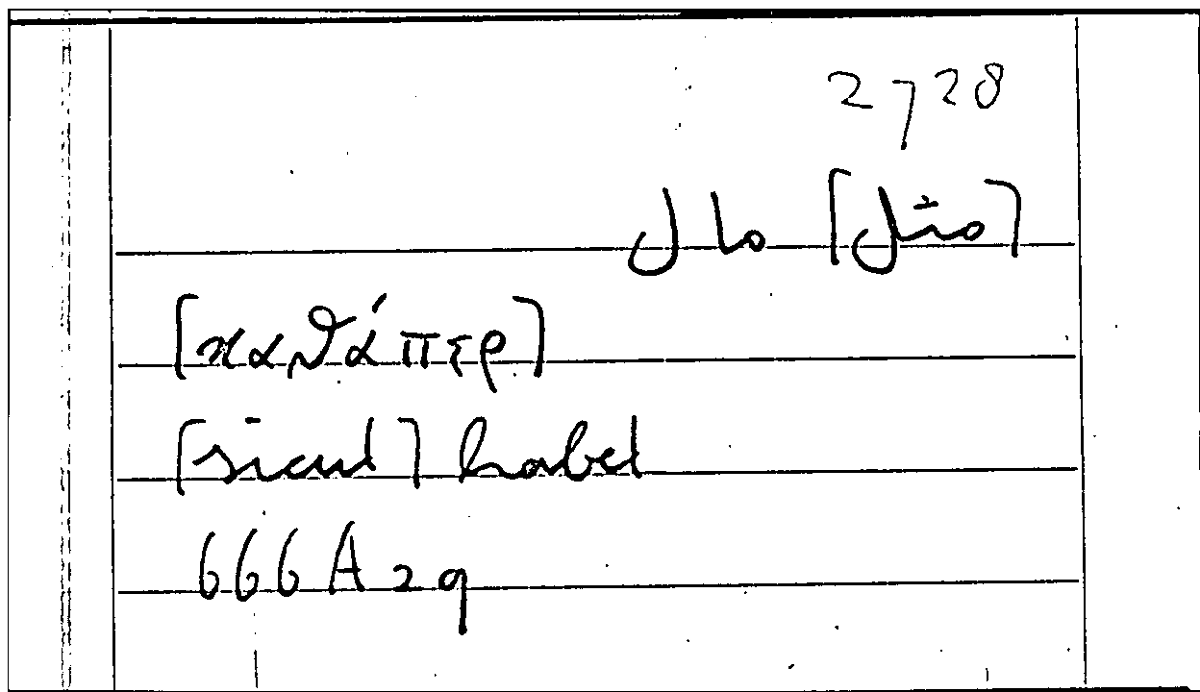 2728
مال [مثل]
[καθάπερ]
[sicut] habet
666A29